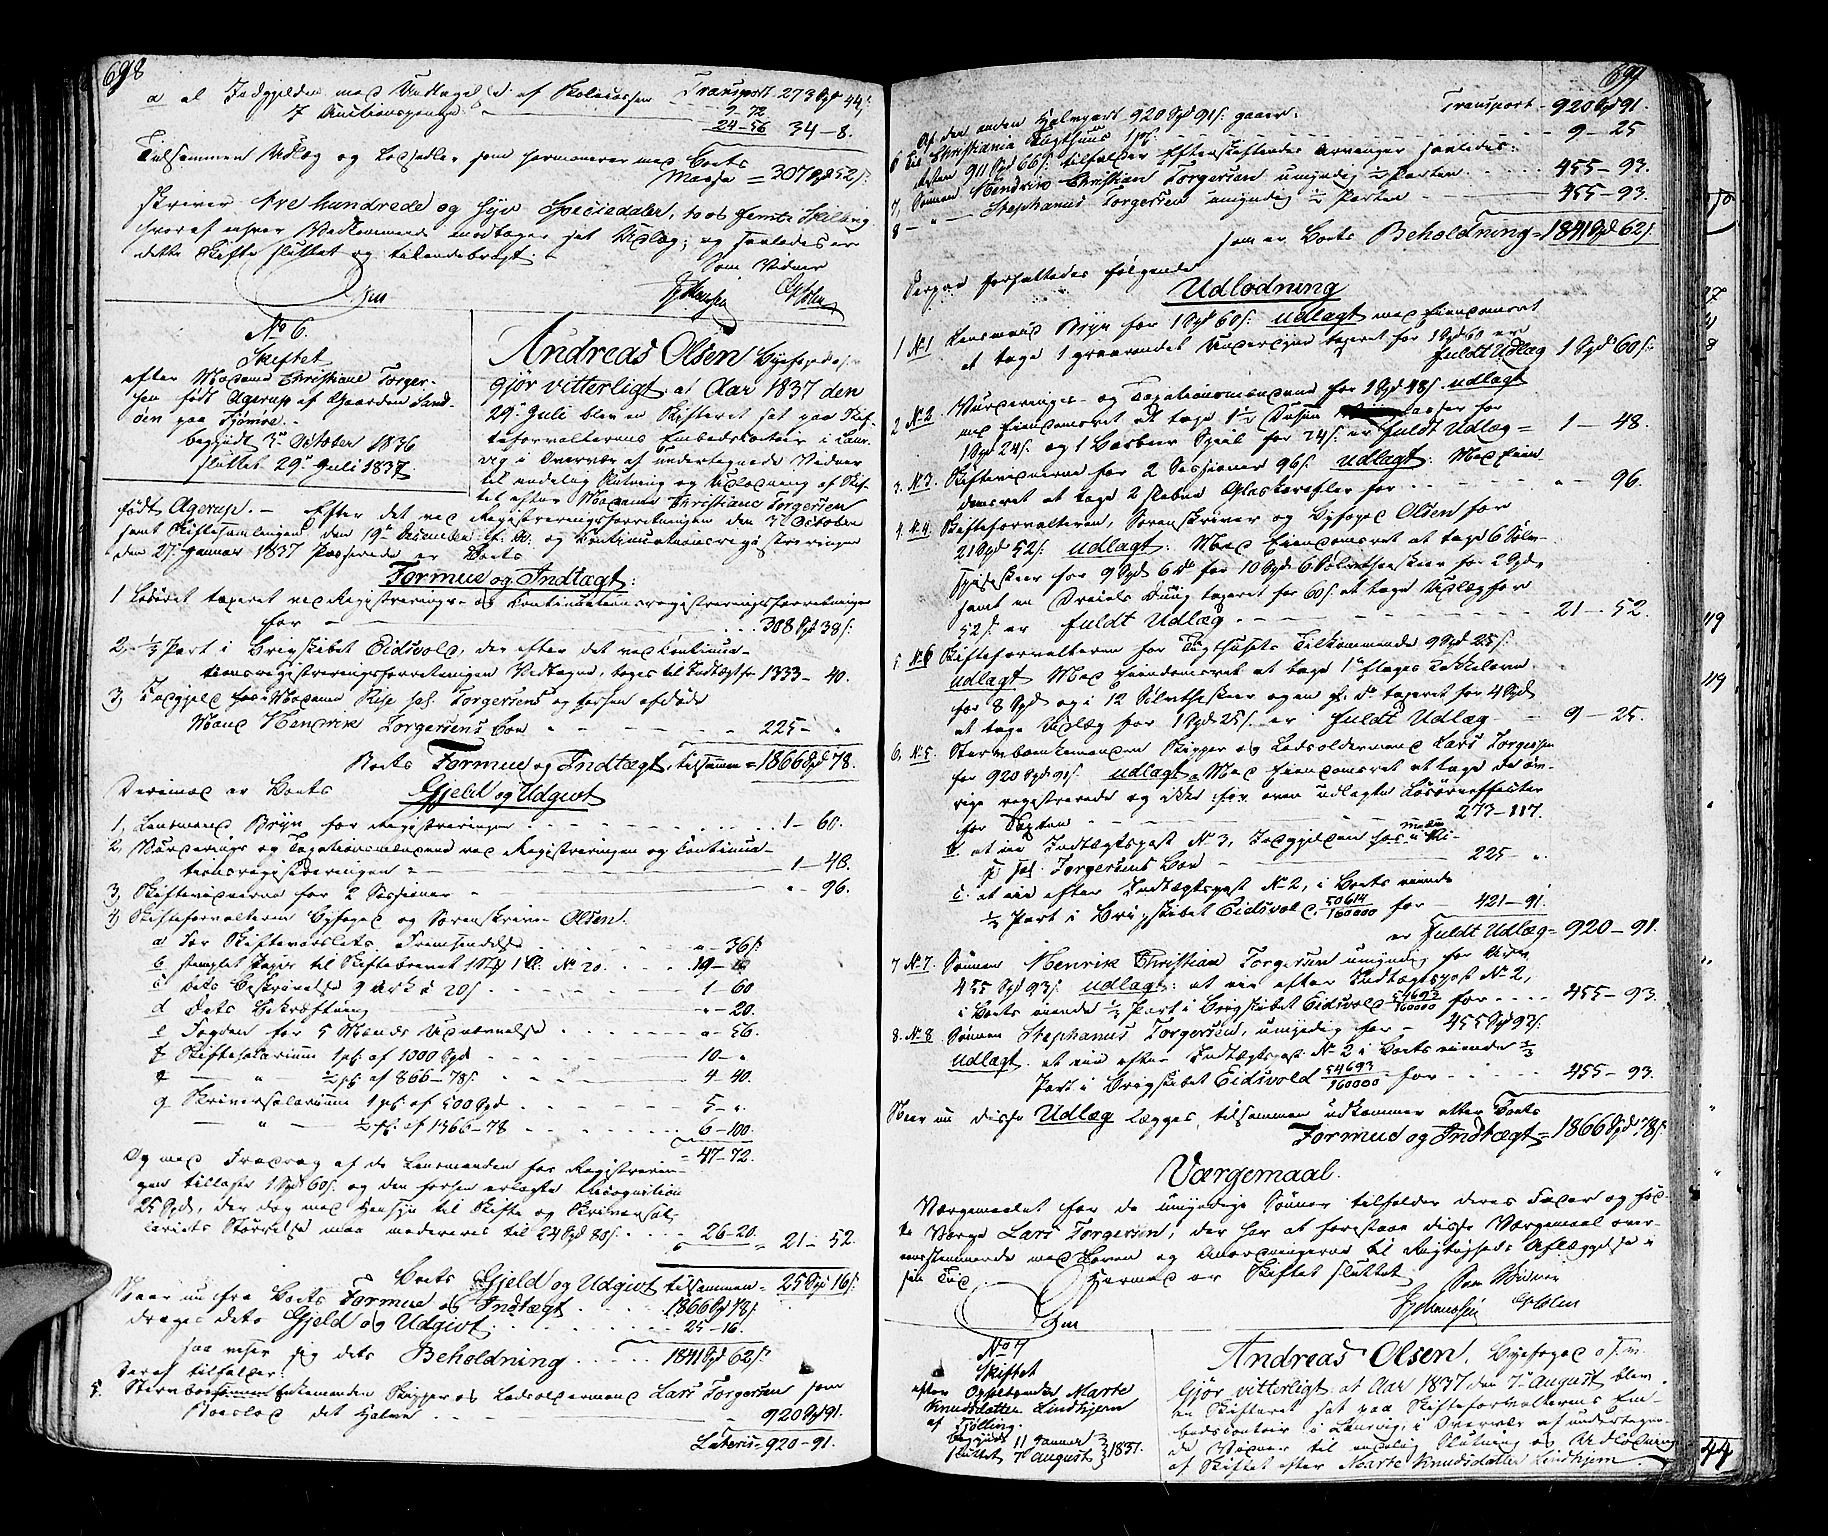 698
Transport 273 Spd 44 s.
7 Auctionspenge
9-72
24-56 34-8.
Tilsammen Udlæg og som harmonerer med Boets
Masse = 307 Spd 52 s.
skriver tre hundrede og syv Speciedaler, 52 Skilling
hvoraf enhver Vedkommende modtager sit Udlæg; og saaledes er
dette Skifte sluttet og tilendebragt.
Som Vidner
No 6.
Skiftet
efter Madame Christiane Torger-
sen født Agerup af Gaarden Sand-
öen paa Tjömöe.
begyndt 3die October 1836
sluttet 29de Juli 1837
Andreas Olsen Byefoged o.s.v.
gjör vitterligt at Aar 1837 den
29de Juli blev en Skifteret sat paa Skif-
teforvalterens Embedskontoir i Laur-
vig i Overvær af undertegnede Vidner
til endelig Slutning og Udlodning af Skif-
tet efter Madame Christiane Torgersen
født Agerup. – Efter det ved Registreringsforretningen den 3die October
samt Skiftesamlingen den 19de December f. A. og Continuationsregistreringen
den 27de Januar 1837 Passerede er Boets
Formue og Indtægt:
1 Løsöret taxeret ved Registrerings- og Continuationsregistreringsforretningen
for 308 Spd 38 s.
2, 1/3 Part i Brigskibet Eidsvold, der efter det ved Continua-
tionsregistreringsforretningen Vedtagne, tages til Indtægt for 1333-40.
3, Tilgjode hos Madame Torgersens og hendes afdøde
Mand Henrik Torgersens Boe 225- "
Boets Formue og Indtægt, tilsammen = 1866 Spd 78.
Derimod er Boets Gjeld og Udgivt
1, Lensmand Bryn for Registreringen 1-60.
2, Vurderings og Taxationsmændene ved Registreringen og Continua-
tionsregistreringen 1-48.
3, Skiftevidnerne for 2 Sessioner " 96.
4, Skifteforvalteren Byefoged og Sorenskriver Olsen.
a For Skiftevarslets Fremsendelse "-36 s.
b stemplet Papir til Skiftebrevet No 20. 19-
c dets Beskrivelse 9 Ark á 20 s. 1-60
d Dets Bekræftning "-20.
e Fogden for 5 Mænds Udnævnelse "-56.
f Skiftesalarium 1 pC. af 1000 Spd 10- "
" 1/2 pC. af 866-78 s. 4-40.
g Skriversalarium 1 pC. af 500 Spd 5- "
" 1/2 pC. af 1366-78 6-100.
= 47-72.
Og med Fradrag af de Lensmanden for Registrerin-
gen tillagte 1 Spd 60 s. og den forhen erlagte Recognition
25 Spd, der dog med Hensyn til Skifte og Skriversal-
lariets Störrelse maa modereres til 24 Spd 80 s. 26-20.
= 21-52.
Boets Gjeld og Udgivt tilsammen = 25 Spd 16 s.
Naar nu fra Boets Formue og Indtægt 1866 Spd 78 s.
drages dets Gjeld og Udgivt 25-16.
saa viser sig dets Beholdning 1841 Spd 62 s.
Deraf tilfalder:
5. Enkemanden Skipper og Lars Torgersen som
Boeslod det Halve 920 Spd 91.
Lateris = 920-91.
699
Transport 920 Spd 91.
Af den anden Halvpart 920 Spd 91 s. gaaer:
6 Til Christiania Tugthuus 1 pC. 9-25
Resten 911 Spd 66 s. tilfalder Efterskeftendes Arvinger saaledes:
7, Sønnen Hendrik Christian Torgersen umyndig 1/2 Parten 455-93.
8 – " – Stephanus Torgersen umyndig 1/2 Parten 455-93.
som er Boets Beholdning = 1841 Spd 62 s.
Derpaa forfattedes følgende
Udlodning
1 No 1 Lensmand Bryn for 1 Spd 60 s. udlagt med Eiendomsret
at tage 1 taxeret for 1 Spd 60 er
fuldt Udlæg 1 Spd 60 s.
2 No 2. Vurderings- og Taxationsmændene for 1 Spd 48 s. udlagt
med Eiendomsret at tage 1 1/2 Dusin for
1 Spd 24 s. og 1 Barbeer Speil for 24 s. er fuldt Udlæg = 1-48.
3. No 3. Skiftevidnerne for 2 Sessioner 96 s. udlagt: Med Eien-
domsret at tage 2 slebne Glaskarafler for "-96.
4. No 4. Skifteforvalteren, Sorenskriver og Byfoged Olsen for
21 Spd 52 s. udlagt: Med Eiendomsret at tage 6 Sølv-
spiseskeer for 9 Spd 6 do for 10 Spd 6 Sølvtheskeer for 2 Spd,
samt en Dreiels Duug taxeret for 60 s. at tage Udlæg for
52 s. er fuldt Udlæg 21-52.
5 No 6 Skifteforvalteren for Tugthusets Tilkommende 9 Spd 25 s.
udlagt Med Eiendomsret at tage
for 8 Spd og i 12 Sølvtheskeer taxeret for 4 Spd
at tage Udlæg for 1 Spd 25 s. er fuldt Udlæg 9-25.
6, No 5. Enkemanden Skipper og Lars Torgersen
for 920 Spd 91 s. udlagt: Med Eiendomsret at tage de öv-
rige registrerede og ikke foroven udlagte Løsöreeffecter
for 273-117.
b. at eie Indtægtspost No 3, hos
Torgersens Boe 225- ".
c. at eie efter Indtægtspost No 2, i Boets eiende
1/3 Part i Brigskibet Eidsvold 50614/160000 for 421-91.
er fuldt Udlæg = 920-91.
7 No 7. Sønnen Henrik Christian Torgersen umyndig for Arv
455 Spd 93 s. udlagt: at eie efter Indtægtspost No 2,
i Boets eiende 1/3 Part i Brigskibet Eidsvold 54693/160000 for 455-93.
8. No 8 Sønnen Stephanus Torgersen, umyndig for 455 Spd 93 s.
udlagt. at eie efter Indtægtspost No 2 i Boets eiende 1/3
Part i Brigskibet Eidsvold 54693/160000 for 455-93.
Naar nu disse Udlæg lægges tilsammen udkommer atter Boets
Formue og Indtægt = 1866 Spd 78 s.
Værgemaal.
Værgemaalet for de umyndige Sønner tilfalder deres Fader og föd-
te Værge Lars Torgersen, der har at forestaae disse Værgemaal over-
eensstemmende med Loven og Anordningerne til Rigtigheds Aflæggelse i
sin Tid. Hermed er Skiftet sluttet
Som Vidner
No 7
Skiftet
efter Marte
Knudsdatter Lindhjem
af Tjölling.
begyndt 11 Januar
sluttet 7de August 1837.
Andreas Olsen, Byefoged o.s.v.
Gjör vitterligt at Aar 1837 den 7de August blev
en Skifteret sat paa Skifteforvalterens Em-
bedscontoir i Laurvig, i Overvær af undertegne-
de Vidner til endelig Slutning og Udlodning
af Skiftet efter Marte Knudsdatter Lindhjem
44